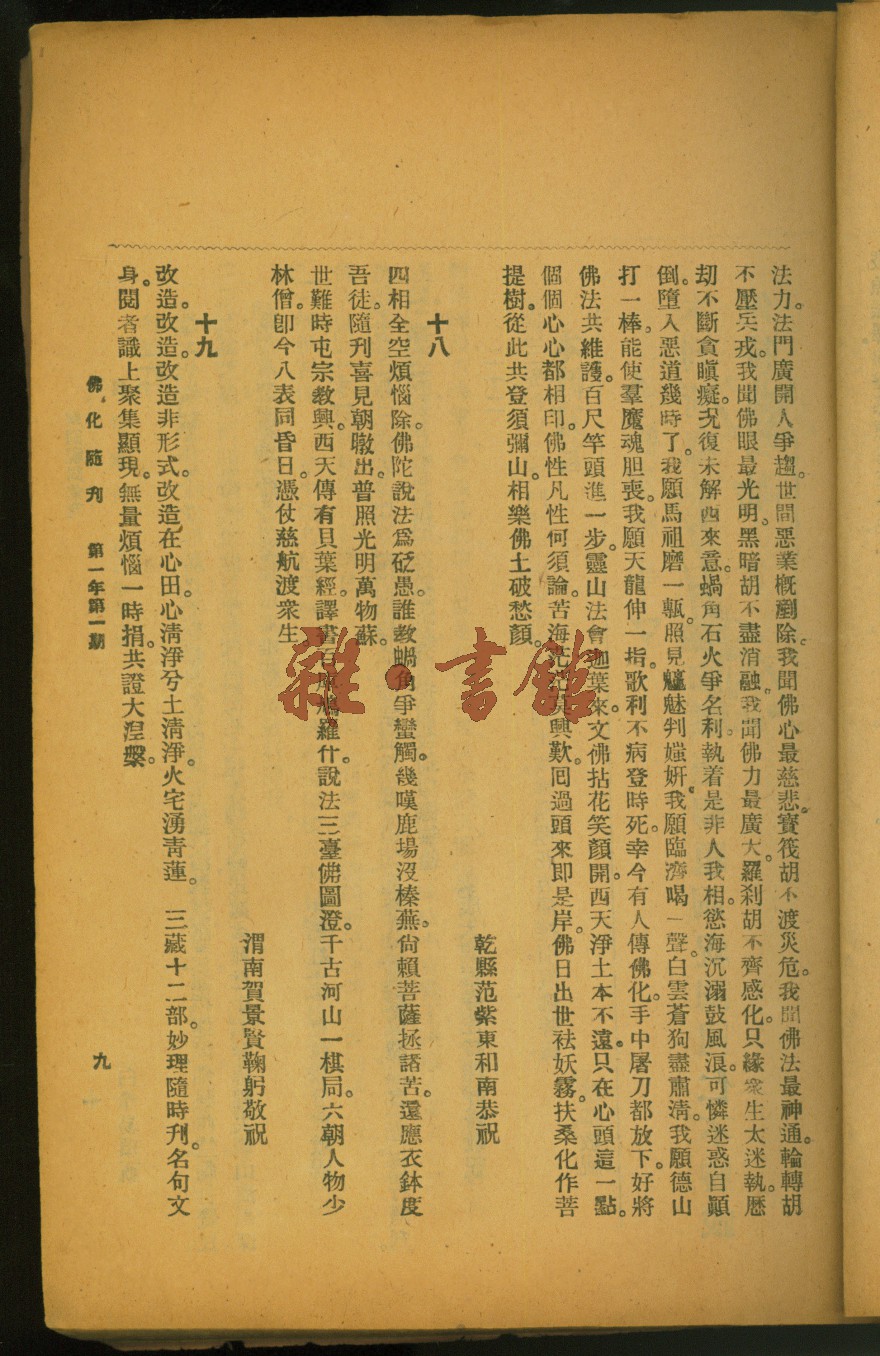 法力。法門廣開人爭趨。世間惡業概剷除。我聞佛心最慈悲。寶筏胡不渡災危。我聞佛法最神通。輪轉胡
不壓兵戎。我聞佛眼最光明。黑暗胡不盡消融。我聞佛力最廣大。羅刹胡不齊感化。只緣衆生太迷執。歷
劫不斷貪瞋癡。况復未解西來意。蝸角石火爭名利。執着是非人我相。慾海沉溺鼓風浪。可憐迷惑自顚
倒。墮入惡道幾時了。我願馬祖磨一甎。照見魑魅判媸妍。我願臨濟喝一聲。白雲蒼狗盡肅淸。我願德山
打一棒。能使羣魔魂胆喪。我願天龍伸一指。歌利不病登時死。幸今有人傳佛化。手中屠刀都放下。好將
佛法共維護。百尺竿頭進一步。靈山法會迦葉來。文佛拈花笑顏開。西天淨土本不遠。只在心頭這一點。
個個心心都相印。佛性凡性何須論。苦海茫茫莫興歎。囘過頭來即是岸。佛日出世祛妖霧。扶桑化作菩
提樹。從此共登須彌山。相樂佛土破愁顏。
乾縣范紫東和南恭祝
十八
四相全空煩惱除。佛陀說法爲砭愚。誰敎蝸角爭蠻觸。幾嘆鹿場沒榛蕪。尙賴菩薩拯諸苦。還應衣鉢度
吾徒。隨刋喜見朝暾出。普照光明萬物蘇。
世難時屯宗敎興。西天傳有貝葉經。譯書石鳩羅什。說法三臺佛圖澄。千古河山一棋局。六朝人物少
林僧。卽今八表同昏日。憑仗慈航渡衆生。
渭南賀景賢鞠躬敬祝
十九
改造。改造。改造非形式。改造在心田。心淸淨兮土淸淨。火宅湧靑蓮。　三藏十二部。妙理隨時刋。名句文
身。閱者識上聚集顯現。無量煩惱一時捐。共證大湼槃。
佛化隨刋　第一年第一期
九
雜·書館